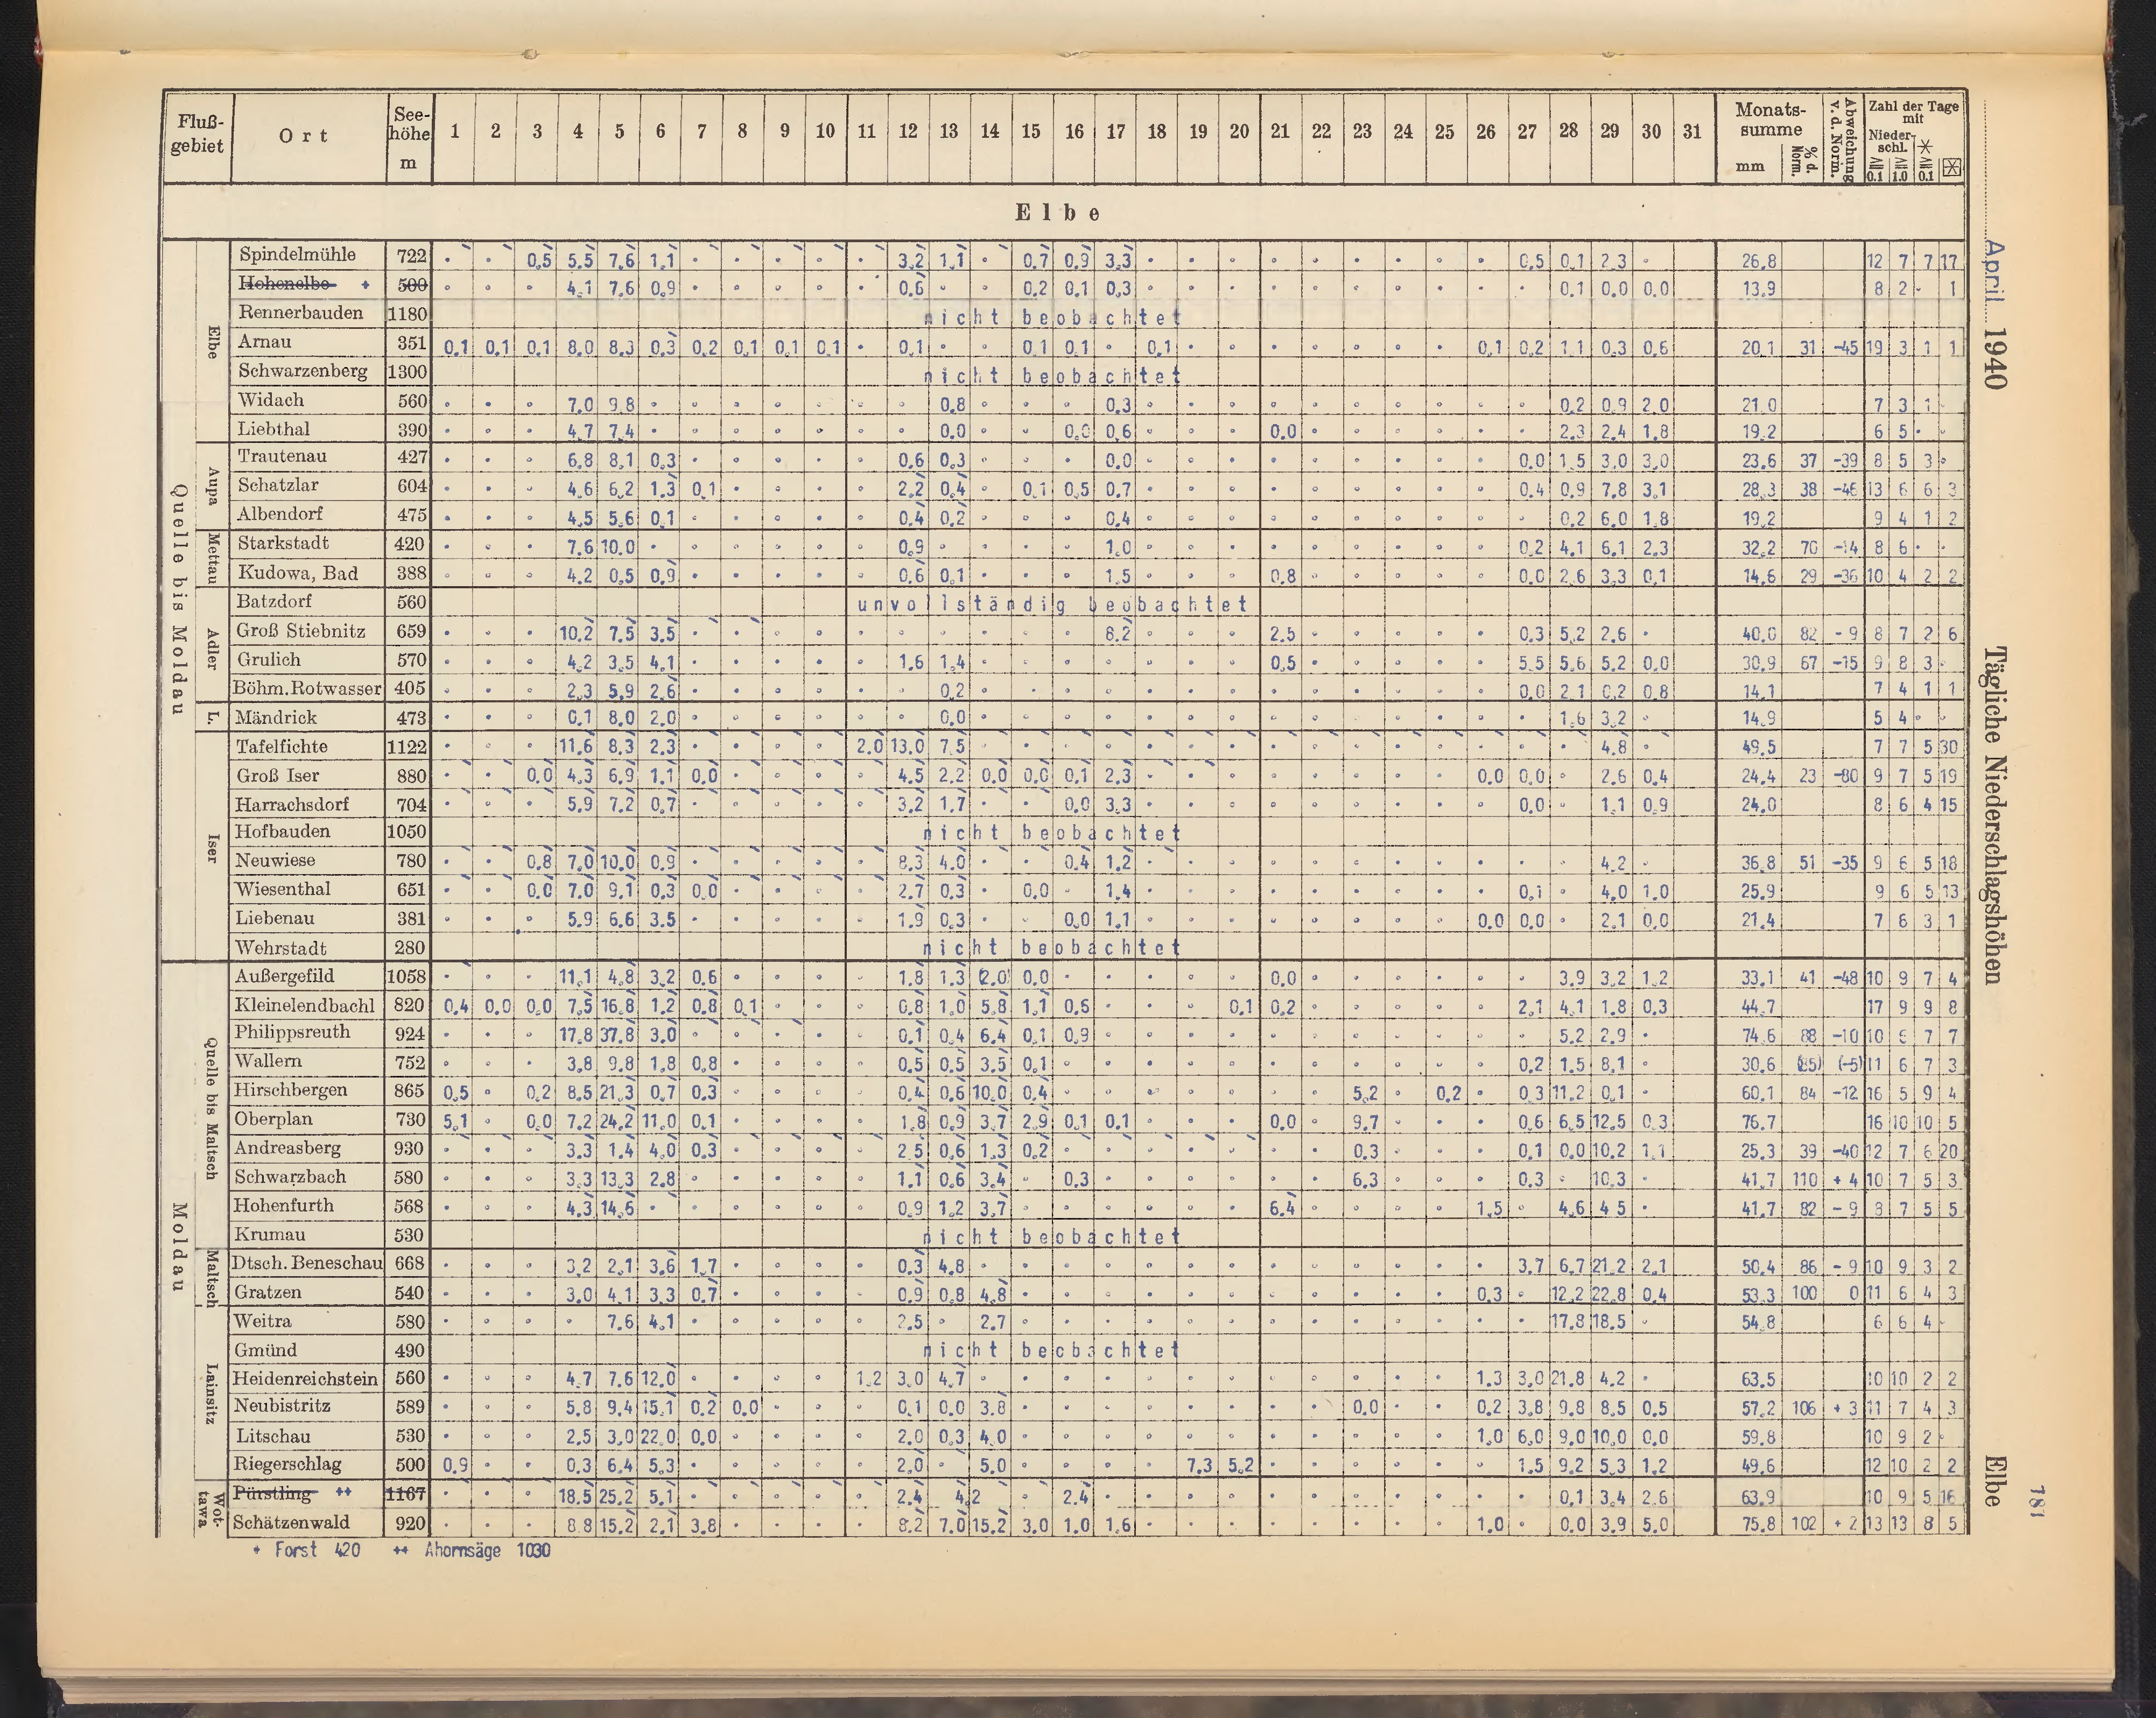 Fluß-gebiet Ort See-höhe m 1 2 3 4 5 6 7 8 9 10 11 12 13 14 15 16 17 18 19 20 21 22 23 24 25 26 27 28 29 30 31 Monats-summe mm % d. Norm. Abweichung v. d. Norm. Zahl der Tage mit Nieder-schl. ≧ 0.1 ≧ 1.0 ≧ 0.1
Elbe
Quelle bis Moldau
Elbe
Spindelmühle 722 · · 0,5 5.5 7,6 1,1 · · · · · 3,2 1,1 · 0,7 0,9 3,3 · · · · · · · · · 0,5 0,1 2,3 · 26,8 12 7 7 17
Hohenelbe + 500 · · · 4,1 7,6 0,9 · · · · · 0,6 · · 0,2 0,1 0,3 · · · · · · · · · · 0,1 0,0 0,0 13,9 8 2 · 1
Rennerbauden 1180 nicht beobachtet
Arnau 351 0,1 0,1 0,1 8,0 8,3 0,3 0,2 0,1 0,1 0,1 · 0,1 · · 0,1 0,1 · 0,1 · · · · · · · 0,1 0,2 1,1 0,3 0,6 20,1 31 -45 19 3 1 1
Schwarzenberg 1300 nicht beobachtet
Widach 560 · · · 7,0 9,8 · · · · · · · 0,8 · · · 0,3 · · · · · · · · · · 0,2 0,9 2,0 21,0 7 3 1 ·
Liebthal 390 · · · 4,7 7,4 · · · · · · · 0,0 · · 0,0 0,6 · · · 0,0 · · · · · · 2,3 2,4 1,8 19,2 6 5 · ·
Aupa
Trautenau 427 · · · 6,8 8,1 0,3 · · · · · 0,6 0,3 · · · 0,0 · · · · · · · · · 0,0 1,5 3,0 3,0 23,6 37 -39 8 5 3 ·
Schatzlar 604 · · · 4,6 6,2 1,3 0,1 · · · · 2,2 0,4 · 0,1 0,5 0,7 · · · · · · · · · 0,4 0,9 7,8 3,1 28,3 38 -46 13 6 6 3
Albendorf 475 · · · 4,5 5,6 0,1 · · · · · 0,4 0,2 · · · 0,4 · · · · · · · · · · 0,2 6,0 1,8 19,2 9 4 1 2
Mettau
Starkstadt 420 · · · 7,6 10,0 · · · · · · 0,9 · · · · 1,0 · · · · · · · · · 0,2 4,1 6,1 2,3 32,2 70 -14 8 6 · ·
Kudowa, Bad 388 · · · 4,2 0,5 0,9 · · · · · 0,6 0,1 · · · 1,5 · · · 0,8 · · · · · 0,0 2,6 3,3 0,1 14,6 29 -36 10 4 2 2
Adler
Batzdorf 560 unvollständig beobachtet
Groß Stiebnitz 659 · · · 10,2 7,5 3,5 · · · · · · · · · · 8,2 · · · 2,5 · · · · · 0,3 5,2 2,6 · 40,0 82 -9 8 7 2 6
Grulich 570 · · · 4,2 3,5 4,1 · · · · · 1,6 1,4 · · · · · · · 0,5 · · · · · 5,5 5,6 5,2 0,0 30,9 67 -15 9 8 3 ·
Böhm. Rotwasser 405 · · · 2,3 5,9 2,6 · · · · · · 0,2 · · · · · · · · · · · · · 0,0 2,1 0,2 0,8 14,1 7 4 1 1
L. Mändrick 473 · · · 0,1 8,0 2,0 · · · · · · 0,0 · · · · · · · · · · · · · · 1,6 3,2 · 14,9 5 4 · ·
Iser
Tafelfichte 1122 · · · 11,6 8,3 2,3 · · · · 2,0 13,0 7,5 · · · · · · · · · · · · · · · 4,8 · 49,5 7 7 5 30
Groß Iser 880 · · 0,0 4,3 6,9 1,1 0,0 · · · · 4,5 2,2 0,0 0,0 0,1 2,3 · · · · · · · · 0,0 0,0 · 2,6 0,4 24,4 23 -80 9 7 5 19
Harrachsdorf 704 · · · 5,9 7,2 0,7 · · · · · 3,2 1,7 · · 0,0 3,3 · · · · · · · · · 0,0 · 1,1 0,9 24,0 8 6 4 15
Hofbauden 1050 nicht beobachtet
Neuwiese 780 · · 0,8 7,0 10,0 0,9 · · · · · 8,3 4,0 · · 0,4 1,2 · · · · · · · · · · · 4,2 · 36,8 51 -35 9 6 5 18
Wiesenthal 651 · · 0,0 7,0 9,1 0,3 0,0 · · · · 2,7 0,3 · 0,0 · 1,4 · · · · · · · · · 0,1 · 4,0 1,0 25,9 9 6 5 13
Liebenau 381 · · · 5,9 6,6 3,5 · · · · · 1,9 0,3 · · 0,0 1,1 · · · · · · · · 0,0 0,0 · 2,1 0,0 21,4 7 6 3 1
Wehrstadt 280 nicht beobachtet
Moldau
Quelle bis Maltsch
Außergefild 1058 · · · 11,1 4,8 3,2 0,6 · · · · 1,8 1,3 2,0 0,0 · · · · · 0,0 · · · · · · 3,9 3,2 1,2 33,1 41 -48 10 9 7 4
Kleinelendbachl 820 0,4 0,0 0,0 7,5 16,8 1,2 0,8 0,1 · · · 0,8 1,0 5,8 1,1 0,6 · · · 0,1 0,2 · · · · · 2,1 4,1 1,8 0,3 44,7 17 9 9 8
Philippsreuth 924 · · · 17,8 37,8 3,0 · · · · · 0,1 0,4 6,4 0,1 0,9 · · · · · · · · · · · 5,2 2,9 · 74,6 88 -10 10 7 7
Wallern 752 · · · 3,8 9,8 1,8 0,8 · · · · 0,5 0,5 3,5 0,1 · · · · · · · · · · · 0,2 1,5 8,1 · 30,6 (85) (-5) 11 6 7 3
Hirschbergen 865 0,5 · 0,2 8,5 21,3 0,7 0,3 · · · · 0,4 0,6 10,0 0,4 · · · · · · · 5,2 · 0,2 · 0,3 11,2 0,1 · 60,1 84 -12 16 5 9 4
Oberplan 730 5,1 · 0,0 7,2 24,2 11,0 0,1 · · · · 1,8 0,9 3,7 2,9 0,1 0,1 · · · 0,0 · 9,7 · · · 0,6 6,5 12,5 0,3 76,7 16 10 10 5
Andreasberg 930 · · · 3,3 1,4 4,0 0,3 · · · · 2,5 0,6 1,3 0,2 · · · · · · · 0,3 · · · 0,1 0,0 10,2 1,1 25,3 39 -40 12 7 6 20
Schwarzbach 580 · · · 3,3 13,3 2,8 · · · · · 1,1 0,6 3,4 · 0,3 · · · · · · 6,3 · · · 0,3 · 10,3 · 41,7 110 +4 10 7 5 3
Hohenfurth 568 · · · 4,3 14,6 · · · · · · 0,9 1,2 3,7 · · · · · · 6,4 · · · · 1,5 · 4,6 4 5 · 41,7 82 -9 8 7 5 5
Krumau 530 nicht beobachtet
Maltsch
Dtsch. Beneschau 668 · · · 3,2 2,1 3,6 1,7 · · · · 0,3 4,8 · · · · · · · · · · · · · 3,7 6,7 21,2 2,1 50,4 86 -9 10 9 3 2
Gratzen 540 · · · 3,0 4,1 3,3 0,7 · · · · 0,9 0,8 4,8 · · · · · · · · · · · 0,3 · 12,2 22,8 0,4 53,3 100 0 11 6 4 3
Lainsitz
Weitra 580 · · · · 7,6 4,1 · · · · · 2,5 · 2,7 · · · · · · · · · · · · · 17,8 18,5 · 54,8 6 6 4 ·
Gmünd 490 nicht beobachtet
Heidenreichstein 560 · · · 4,7 7,6 12,0 · · · · 1,2 3,0 4,7 · · · · · · · · · · · · 1,3 3,0 21,8 4,2 · 63,5 10 10 2 2
Neubistritz 589 · · · 5,8 9,4 15,1 0,2 0,0 · · · 0,1 0,0 3,8 · · · · · · · · 0,0 · · 0,2 3,8 9,8 8,5 0,5 57,2 106 +3 11 7 4 3
Litschau 530 · · · 2,5 3,0 22,0 0,0 · · · · 2,0 0,3 4,0 · · · · · · · · · · · 1,0 6,0 9,0 10,0 0,0 59,8 10 9 2 ·
Riegerschlag 500 0,9 · · 0,3 6,4 5,3 · · · · · 2,0 · 5,0 · · · · 7,3 5,2 · · · · · · 1,5 9,2 5,3 1,2 49,6 12 10 2 2
Wot-tawa
Pürstling ++ 1167 · · · 18,5 25,2 5,1 · · · · · 2,4 4,2 · 2,4 · · · · · · · · · · · 0,1 3,4 2,6 63,9 10 9 5 16
Schätzenwald 920 · · · 8,8 15,2 2,1 3,8 · · · · 8,2 7,0 15,2 3,0 1,0 1,6 · · · · · · · · 1,0 · 0,0 3,9 5,0 75,8 102 +2 13 13 8 5
+ Forst 420 ++ Ahornsäge 1030
April 1940
Tägliche Niederschlagshöhen
Elbe
781